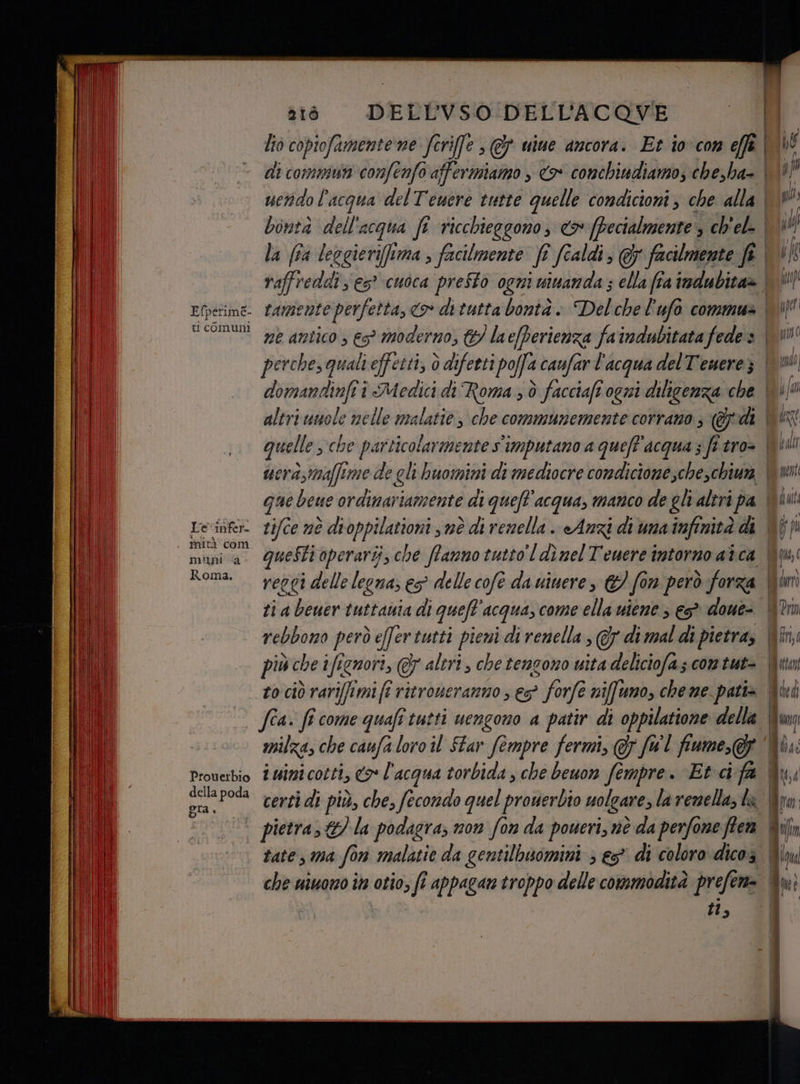 210 DELL'VSO DELL'ACQVE
lio copiosamente ne scrisse, & uiue ancora. Et io con essi
di commun consenso affermiamo, & conchiudiamo, che, ha-
uendo l'acqua del Teuere tutte quelle condicioni, che alla
bontà dell'acqua si ricchieggono, & specialmente, ch'el-
la sia leggierissima, facilmente si scaldi, & facilmente si
raffreddi, & cuoca presto ogni uiuanda; ella sia indubita-
Esperimẽ-
ti cõmuni
tamente perfetta, & di tutta bontà. Del che l'uso commu-
ne antico, & moderno, & la esperienza fa indubitata fede:
perche, quali effetti, ò difetti possa causar l'acqua del Teuere;
domandinsi i Medici di Roma, ò facciasi ogni diligenza che
altri uuole nelle malatie, che communemente corrano, & di
quelle, che particolarmente s'imputano a quest'acqua; si tro-
uerà, massime de gli huomini di mediocre condicione, che, chiun
que beue ordinariamente di quest'acqua, manco de gli altri pa
Le infer-
mità com
muni a
Roma.
tisce nè di oppilationi, nè di renella. Anzi di una infinità di
questi operarij, che stanno tutto'l dì nel Teuere intorno a i ca
reggi delle legna, & delle cose da uiuere, & son però forza
ti a beuer tuttauia di quest'acqua, come ella uiene, & doue-
rebbono però esser tutti pieni di renella, & di mal di pietra,
più che i signori, & altri, che tengono uita deliciosa; con tut-
to ciò rarissimi si ritroueranno, & forse nissuno, che ne pati-
sca. si come quasi tutti uengono a patir di oppilatione della
milza, che causa loro il star sempre fermi, & su'l fiume, &
Prouerbio
della poda
gra.
i uini cotti, & l'acqua torbida, che beuon sempre. Et ci fa
certi di più, che, secondo quel prouerbio uolgare, la renella, la
pietra, & la podagra, non son da poueri, nè da persone sten
tate, ma son malatie da gentilhuomini, & di coloro dico,
che uiuono in otio, si appagan troppo delle commodità presen-
ti,